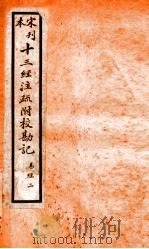 宋刊本
十三經注疏附校勘記
易經二